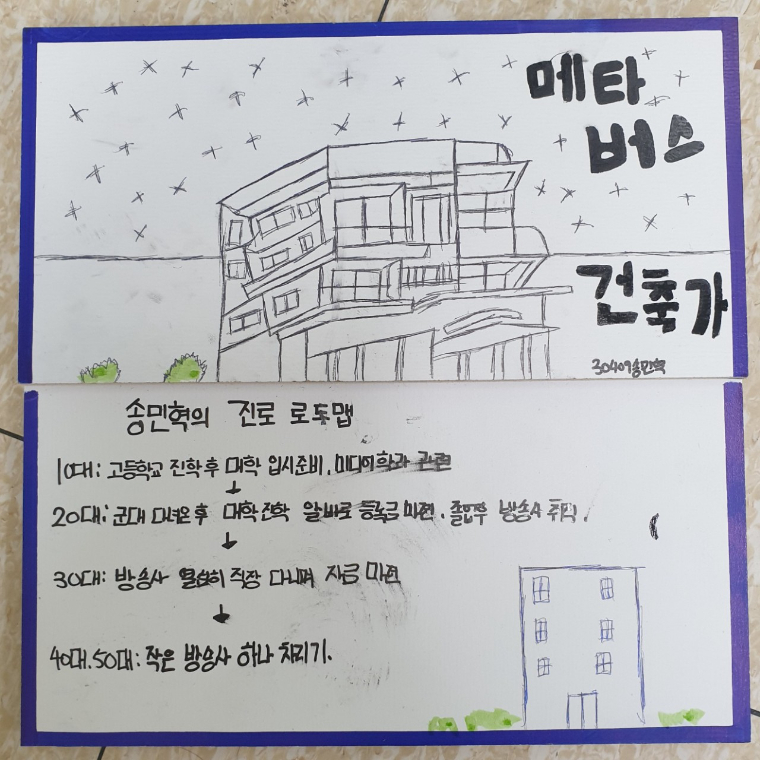 메타
버스
건축가
30409송민혁
송민혁의 진로 로드맵
10대: 고등학교 진학 후 대학 입시준비, 미디어학과 관련
20대: 군대 다녀온 후 대학진학 알바로 등록금 마련, 졸업후 방송사 취직,
30대: 방송사 열심히 직장 다니며 자금 마련
40대.50대: 작은 방송사 하나 차리기.